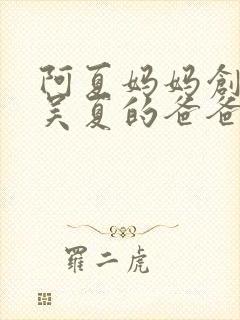 阿夏妈妈創
吴夏的爸爸
羅二虎